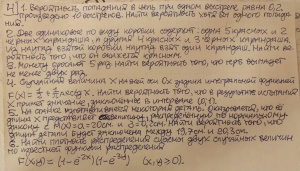 4 1. Вероятность попадания в цель при одном выстреле равна 0,2.
Произведено 10 выстрелов. Найти вероятность хотя бы одного попада-
ния.
2. Две одинаковые по виду коробки содержат: одна 5 красных и 2
карандаша, а другая 4 красных и 3 карандаша,
из наугад взятой коробки наугад взят один карандаш. Найти ве-
роятность того, что он окажется
3. Монету бросают 5 раз. Найти вероятность того, что герб выпадет
не менее двух раз.
4. Случайная величина X на всей оси Ox задана интегральной функцией
F(x) = 1/2 + 1/π arctg x. Найти вероятность того, что в результате испытания
X примет значение, заключенное в интервале (0,1).
5. На станке изготовлена некоторая деталь.
длина X представляет
закону с = 20см и = 0,2см. Найти вероятность того, что
длина детали будет заключена между 19,7см и 20,3см.
6. Найти плотность распределения системы двух случайных величин
по известной функции распределения
F(x,y) = (1-e^-2x)(1-e^-3y) (x,y ≥ 0).